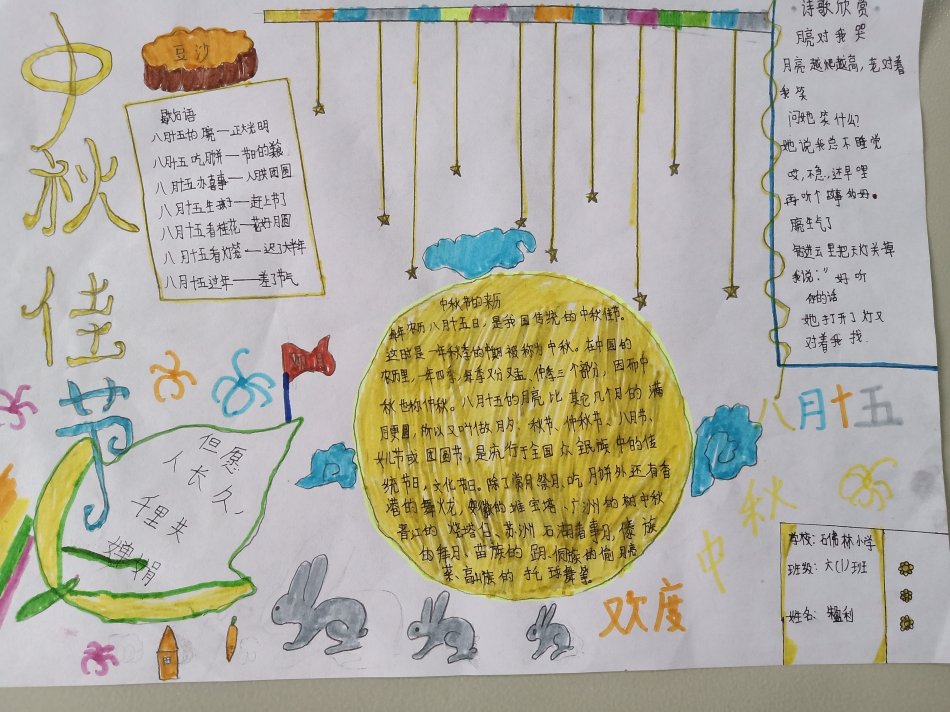 中秋佳节
豆沙
歇后语
八月十五的月亮——正大光明
八月十五吃月饼——节日的美餐
八月十五办喜事——人月共团圆
八月十五生孩子——赶上节了
八月十五看桂花——花好月圆
八月十五看灯笼——迟了大半年
八月十五过年——差了节气
中秋节的来历
每年农历八月十五日，是我国传统的中秋佳节。
这时是一年秋季的中期被称为中秋。在中国的
农历里，一年四季，每季又分孟、仲季三个部分，因而中
秋也称仲秋。八月十五的月亮比其它几个月的满
月更圆，所以又叫做月夕、秋节、仲秋节、八月节、
女儿节或团圆节，是流行于全国众多民族中的佳
统节日，文化节日。除了赏月祭月、吃月饼外还有香
港的舞火龙、安徽的堆宝塔、广州的树中秋
晋江的烧塔仔、苏州石湖看串月、傣族
的拜月、苗族的跳月、侗族的偷月亮
菜、高山族的托球舞等。
诗歌欣赏
月亮对我哭
月亮越爬越高，老对着
我笑
问她笑什么
她说我总不睡觉
哎，不急，还早哩
再听个故事的
月亮生气了
钻进云里把天灯关掉
我说：“好听
你的话
她打开了灯又
对着我找
但愿
人长久、
千里共
婵娟
八月十五
中秋
欢度
学校：石佛林小学
班级：六(1)班
姓名：